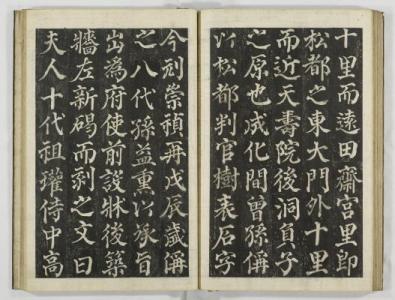 十里而遠田齋宮里即
松都之東大門外十里
而近天壽院後洞負子
之原也成化間曾孫偁
以松都判官樹表石字
今刓崇禎再戊辰歲偁
之八代孫益熏以承旨
出為府使前設牀後築
牆左新碣而刻之文曰
夫人十代祖瓘侍中高